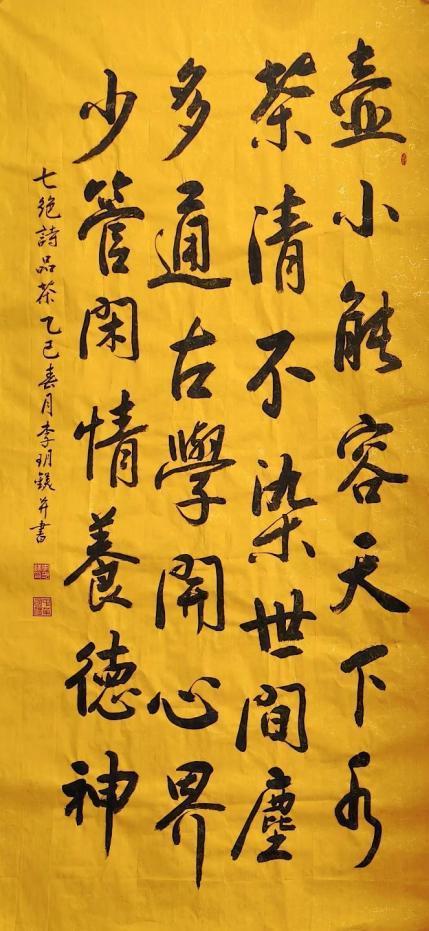 壺小能容天下水
茶清不染世間塵
多通古學開心界
少管閑情養德神
七絕詩品茶乙巳春月李玥鋑并書